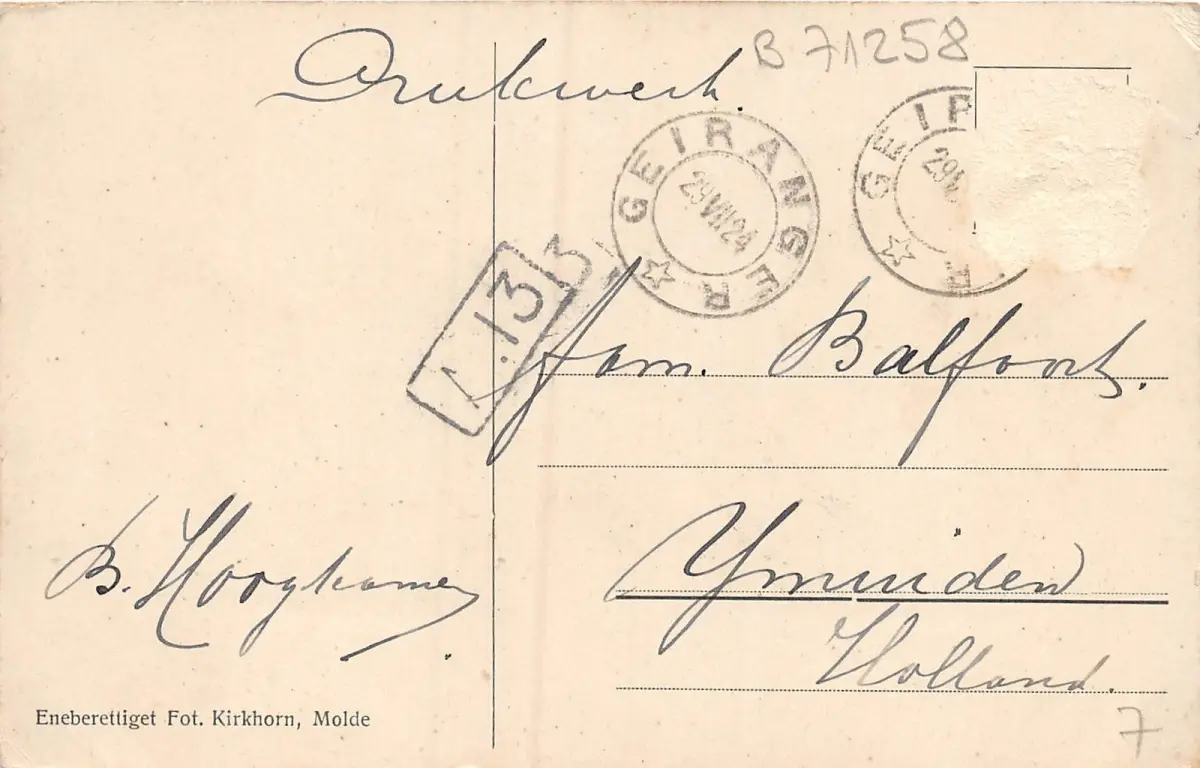 B 71258
Drukwerk.
GEIRANGER
29 VII 24
GEIR R
29 V
1.13 3
Fam. Balfoort.
Ymuiden
Holland.
B. Hoogkamer
Eneberettiget Fot. Kirkhorn, Molde
7